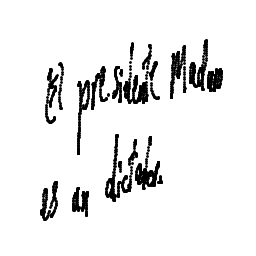 El presidente Maduro
es un dictador.